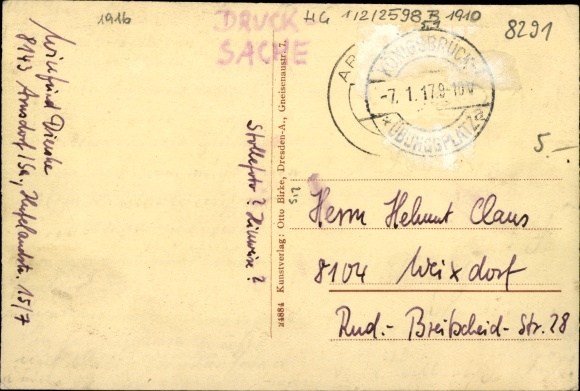 1916
DRUCK-
SACHE
HG 1/2/2598 B 1910
8291
KÖNIGSBRÜCK
-7. 1. 17. 9-10 V
ÜBUNGSPLATZ
5.-
Winfried Dienke
8143 Arnsdorf/Sa., Hufelandstr. 15/7
Stollefoto? Hinweise?
24884 Kunstverlag: Otto Birke, Dresden-A., Gneisenaustr. 7.
Herrn Helmut Claus
8104 Weixdorf
Rud.-Breitscheid-Str. 28